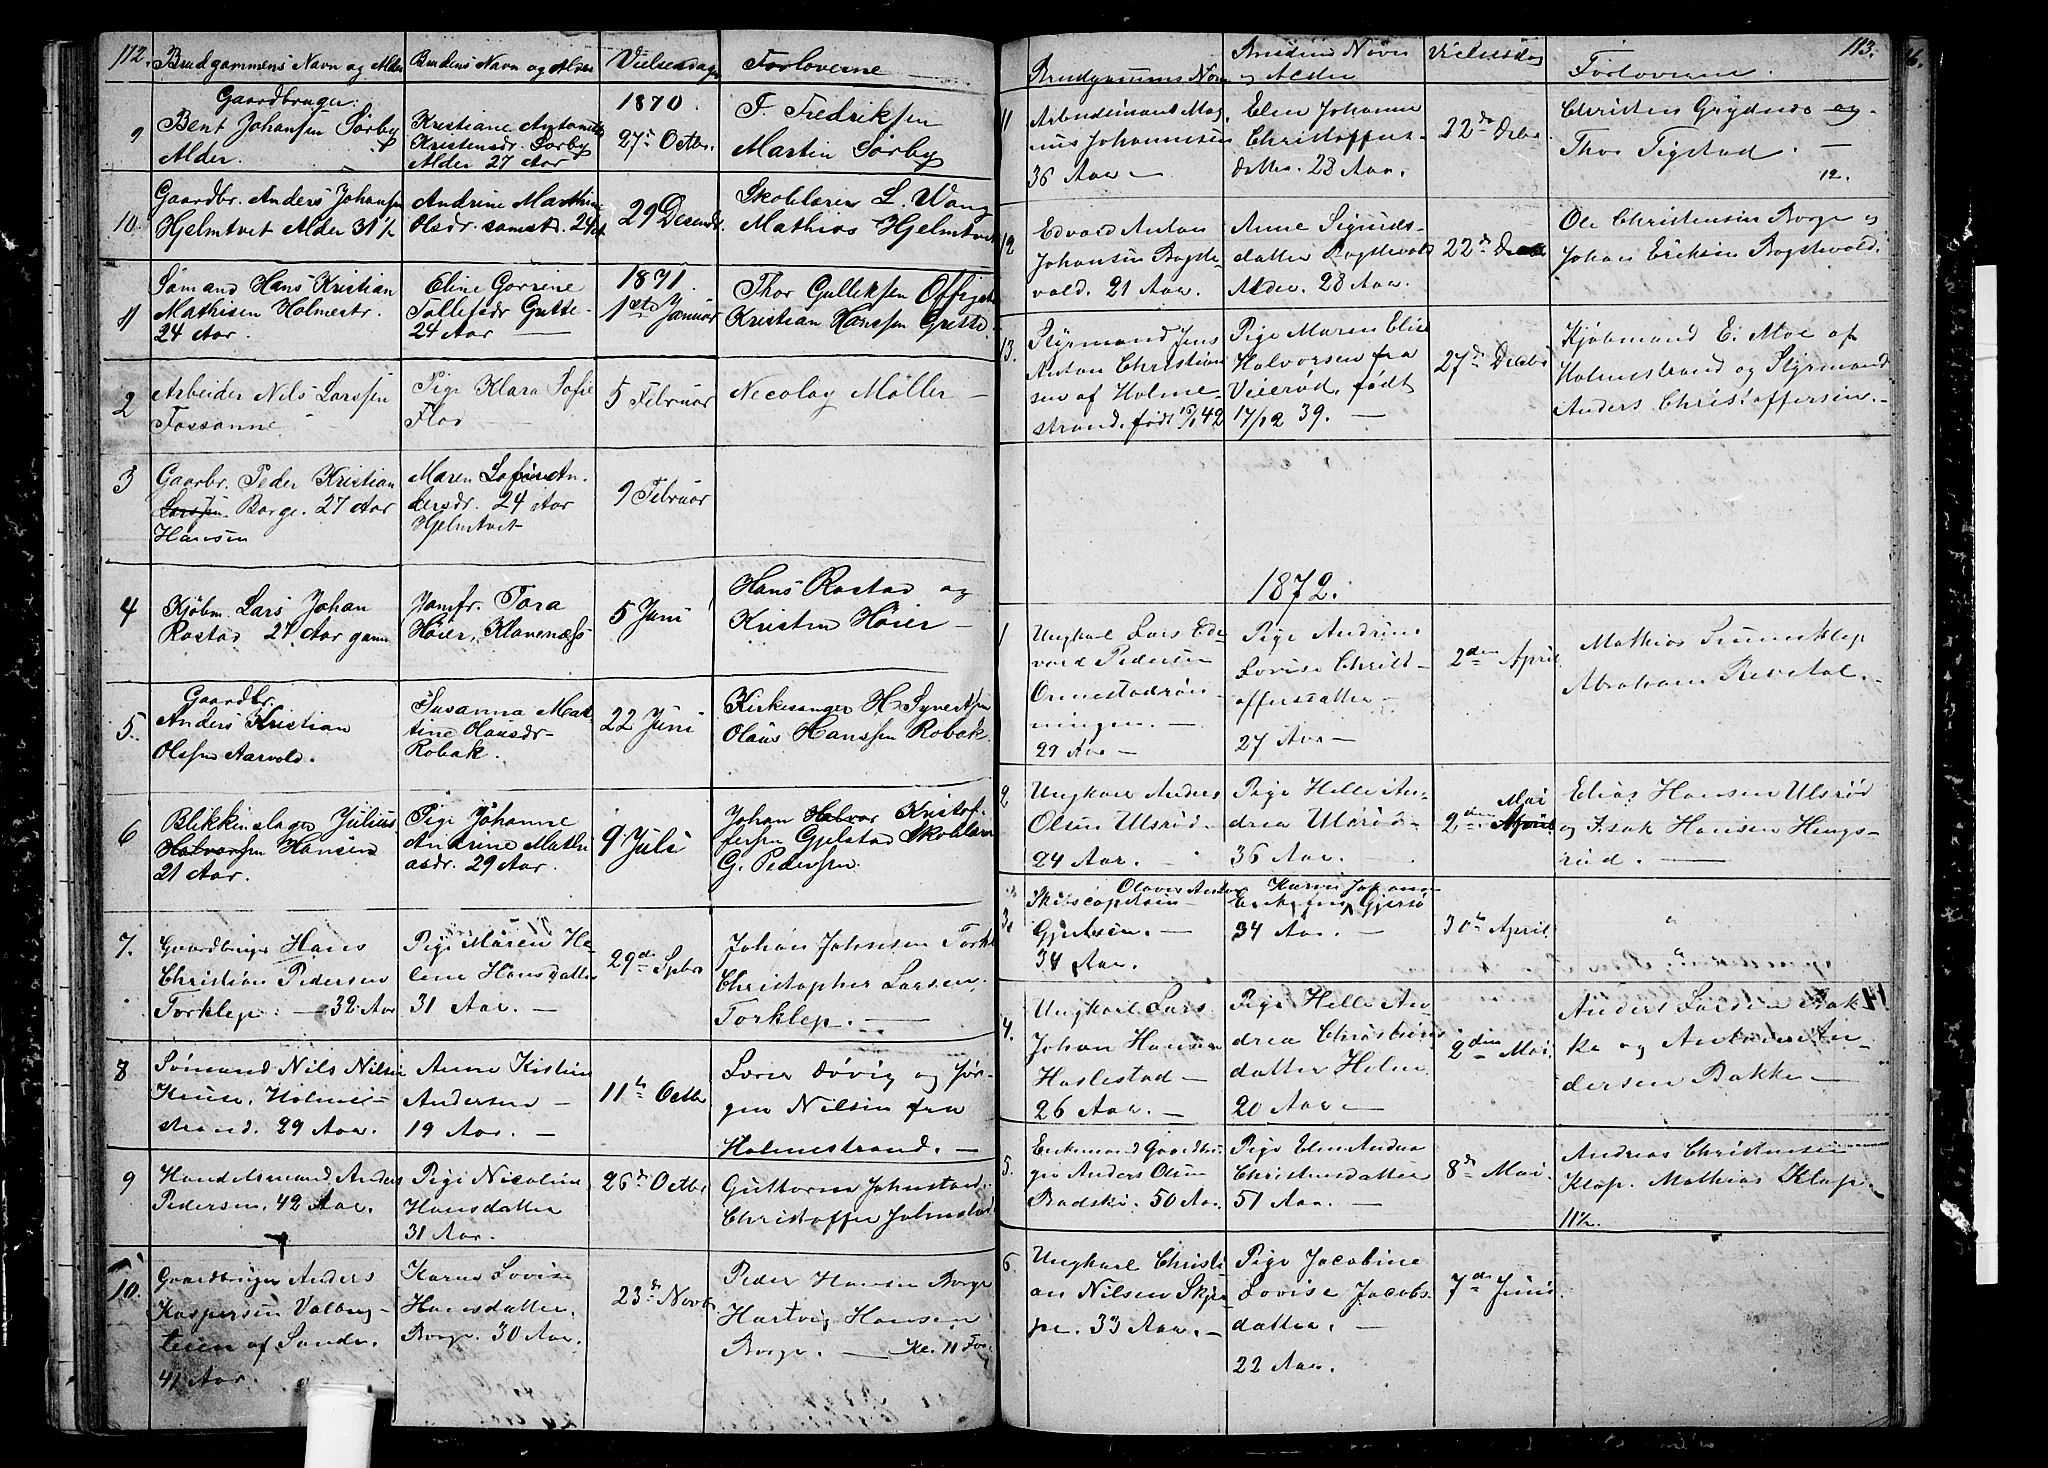 112. Brudgommens Navn og Alder Brudens Navn og Alder Vielsesdag Forloverne
9 Gaardbruger
Bent Johansen Sørby
Alder.
Kristiane
Kristensdr. Sørby
Alder 27 Aar
1870.
27de Octbr.
F. Fredriksen
Martin Sørby
10. Gaardbr. Anders Johansen
Hjelmtvet Alder 31½
Andrine
Olsdr. samst. 24
29 Decembr
Skolelærer L. Wang
Mathias Hjelmtvet
11 Sømand Hans Kristian
Mathisen Holmestr.
24 Aar.
Eline
24 Aar
1871.
1ste Januar
Thor Gulliksen
Kristian Hanssen
2 Arbeider Nils Larssen
Fossanne
Pige Klara Sofie
Flod
5 Februar
Necolay Möller
3 Gaarbr. Peder Kristian
Larssen Borge. 27 Aar
Hansen
Maren
dersdr. 24 Aar
Hjelmtvet
9 Februar
4 Kjöbm. Lars Johan
Rostad 27 Aar gam
Jomfr. Tora
Höier, Klavenæs
5 Juni
Hans Rostad og
Kristen Höier
5. Gaardbr.
Anders Kristian
Olssen Aarvold.
Susanna Mar-
tine Hansdr
Robak.
22 Juni
Kirkesanger H. Syvertsen
Olaus Hanssen Robak.
6 Blikkenslager Julius
Halvorsen Hansen
21 Aar.
Pige Johanne
Andrine Mathi
asdr. 29 Aar.
9 Juli
Johan Halvor Kristof
fersen Gjelstad Skolelærer
G. Pedersen.
7. Gaardbruger Hans
Christian Pedersen
Torklep. 32 Aar
Pige Maren He
lene Hansdatter
31 Aar.
29de Sptbr
Johan Johnsen Torkl
Christopher Larsen
Torklep.
8 Sømand Nils Nilsen
Kruse, Holme-
strand. 29 Aar.
Anne Kistine
Andersen
19 Aar.
11te Octbr
Lærer Døvig og Jør-
gen Nilsen fra
Holmestrand.
9 Handelsmand Anders
Pedersen. 42 Aar.
Pige Nicoline
Hansdatter
31 Aar.
26de Octbr
Guttorm Jahnstad.
Christoffer Jahnstad
10. Gaardbruger Anders
Kaspersen Valberg-
teien af Sande.
41 Aar.
Karen Lovise
Hansdatter.
Borge. 30 Aar.
23de Novbr
Peder Hansen Borge
Hartvig Hansen
Borge. Kl. 11 For.
113.
Brudgommens Navn Brudens Navn
og Alder Vielsesdag Forloverne.
11 Arbeidsmand Mag
nus Johannesen
36 Aar
Elen Johanne
Christoffers-
datter. 23 Aar.
22de Debr.
Christen Grydnes og
Thor Tigstad.
12.
12 Edvard Anton
Johansen Bogste-
vold. 21 Aar.
Anne Sigurds-
datter Bogstevold
Alder. 28 Aar.
22de
Ole Christensen Borge og
Johan Eriksen Bogstevold.
13. Styrmand Jens
Anton Christian
sen af Holme-
strand. født 42
Pige Maren Elise
Halvorsen fra
Veierød, født
17/12 39.
27de Decbr
Kjøbmand E. Moe af
Holmestrand og Styrmand
Anders Christoffersen.
1872.
1 Ungkarl Lars Ed-
vard Pedersen
Ormestadrøn-
ningen.
29 Aar
Pige Andrine
Lovise Christ-
offersdatter
27 Aar
2den April
Mathias
Abraham Revetal.
2 Ungkarl Anders
Olsen Ulsrød.
24 Aar.
Pige Helle An-
drea Ulsrød
36 Aar.
Mai
2den April
Elias Hansen Ulsrød
og Isak Hansen Hengs-
rud.
3. Skibscaptein Olaves
Gjertsen.
34 Aar.
Karen
Gjersø
34 Aar.
30te April
"
"
4. Ungkarl Lars
Johan Hansen
Haslestad
26 Aar.
Pige Helle An-
drea Christens
datter Holm.
20 Aar
2den Mai.
Anders Larsen Bak
ke og An-
dersen Bakke
5. Enkemand Gaardbru-
ger Anders Olsen
Badski. 50 Aar.
Pige Elen Andrea
Christensdatter
51 Aar.
8de Mai.
Andreas Christensen
Klop. Mathias Klop.
11½.
6. Ungkarl Christi-
an Nilsen Skje
pe. 33 Aar.
Pige Jacobine
Lovise Jacobs
datter.
22 Aar.
7de Juni